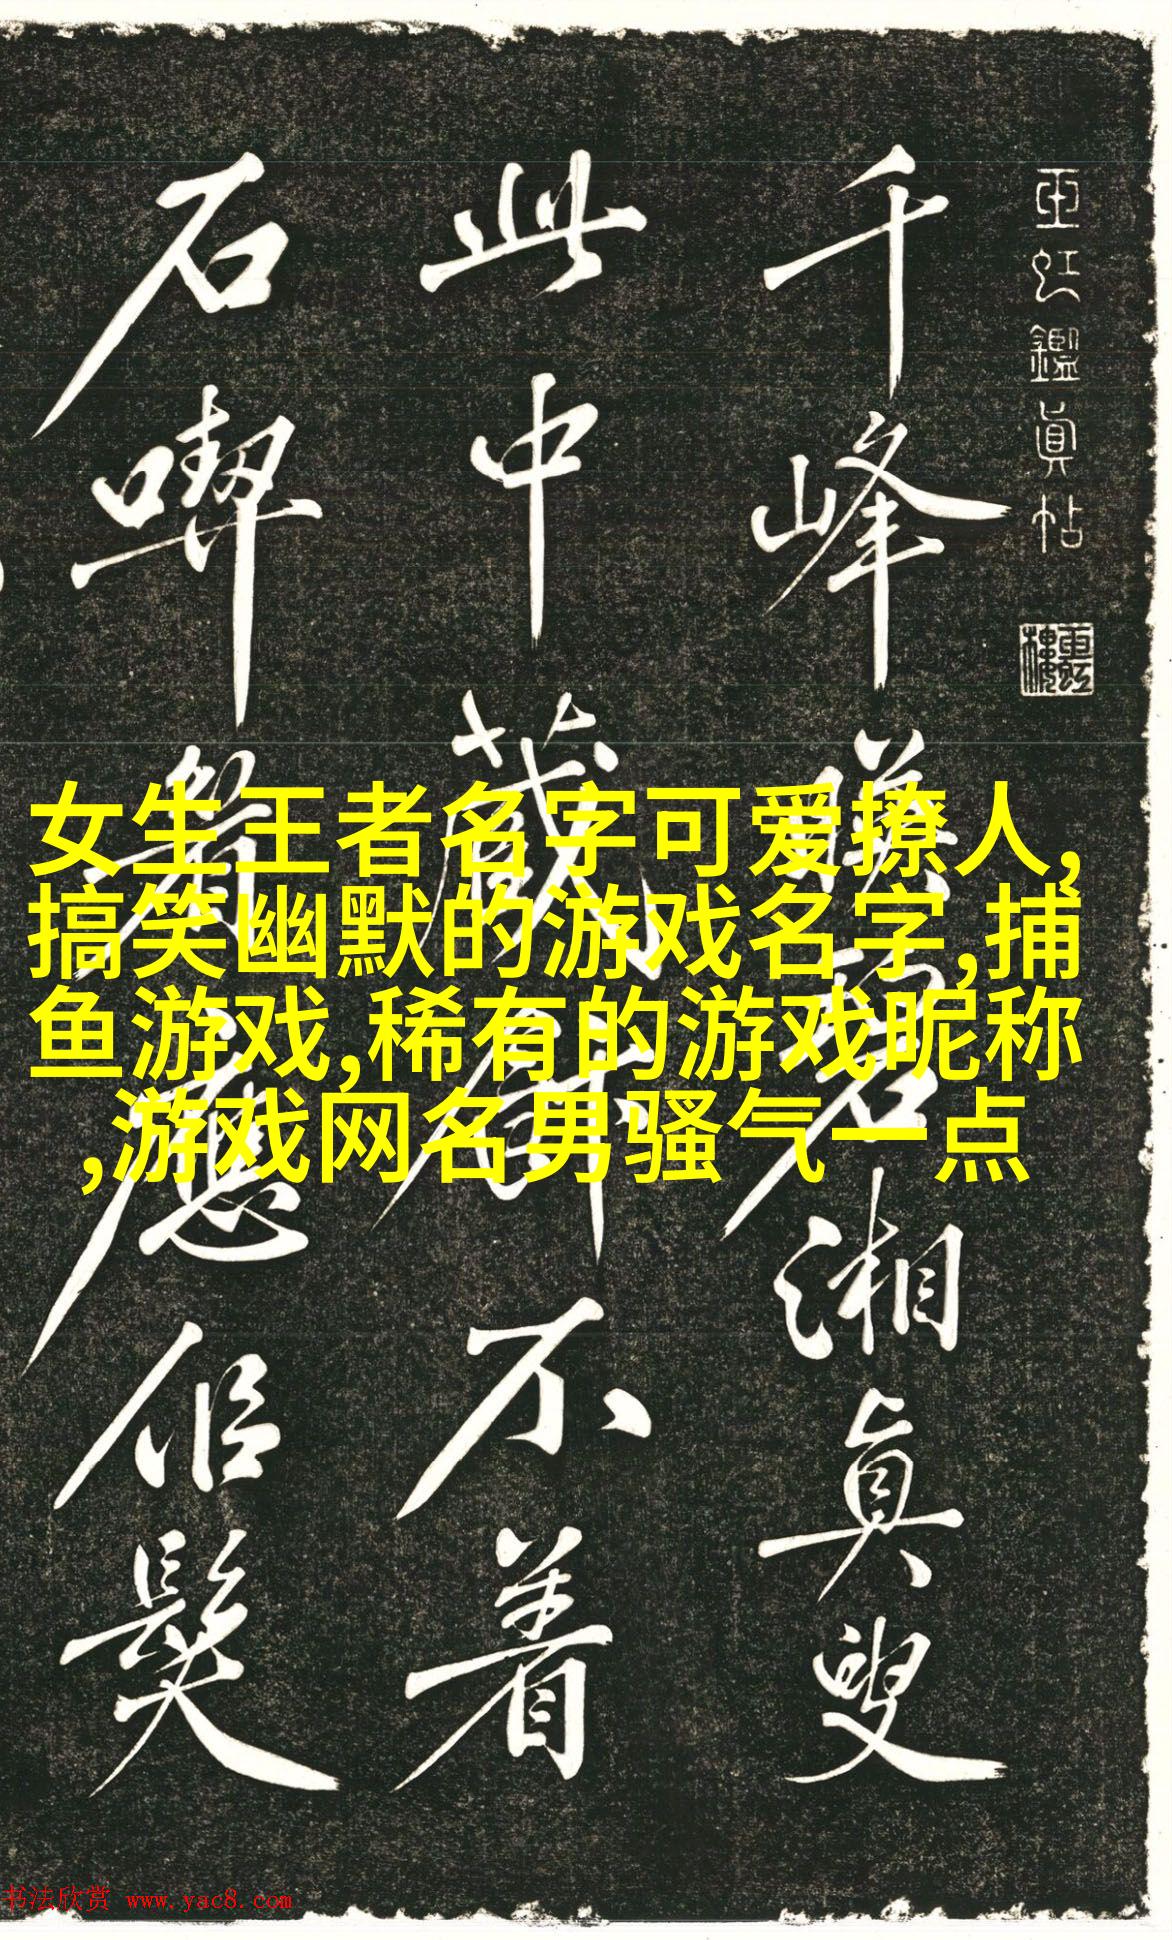 玉虹鑑真帖
玉虹樓
千峰映碧湘真叟
此中藏不着
石喫應佀髮
女生王者名字可爱撩人,
搞笑幽默的游戏名字,捕
鱼游戏,稀有的游戏昵称
,游戏网名男骚气一点
书法欣赏 www.yac8.com